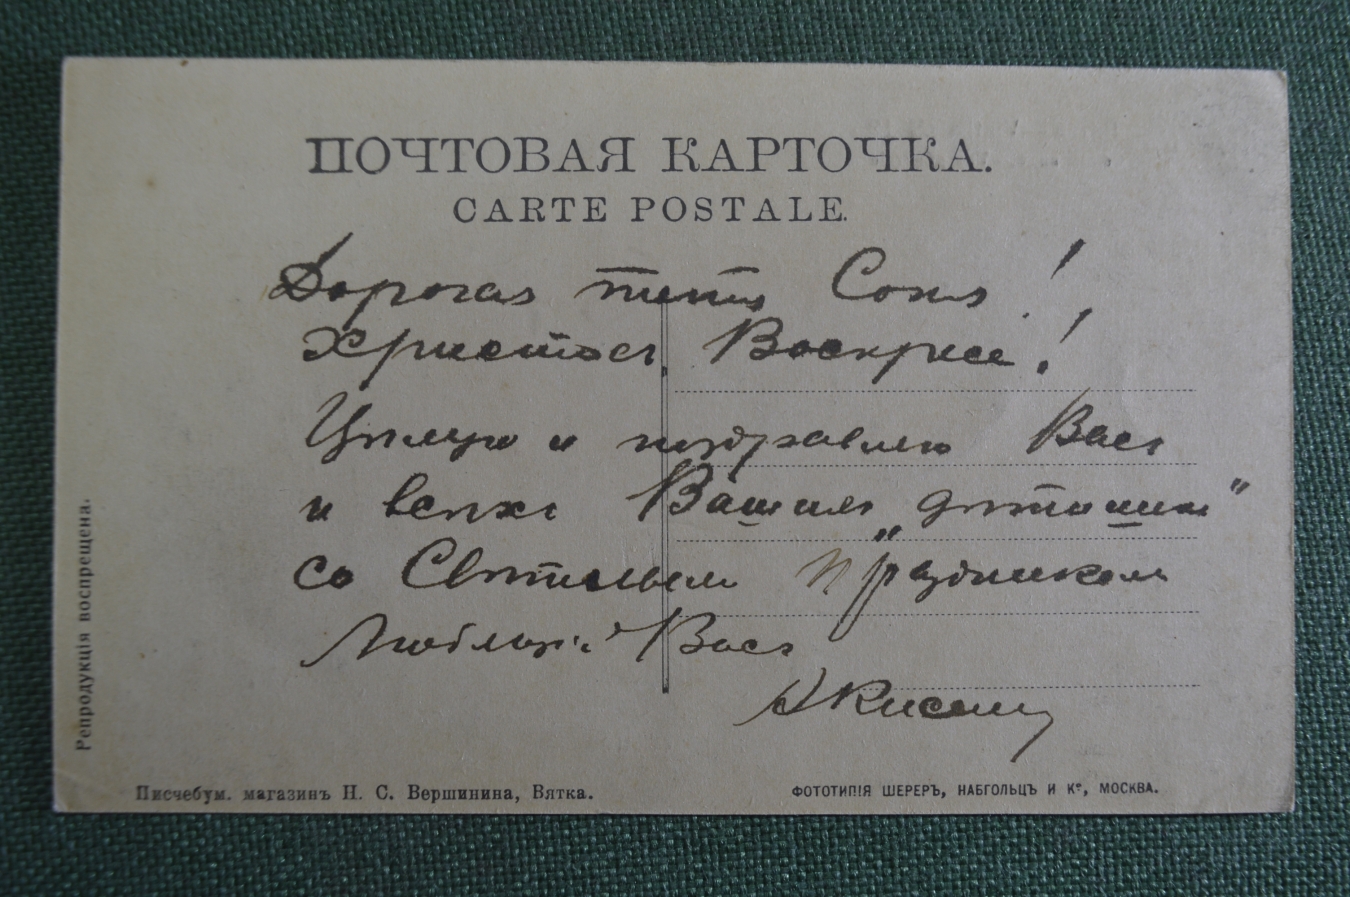 ПОЧТОВАЯ КАРТОЧКА.
CARTE POSTALE.
Дорогая тетя Соня!
Христосъ Воскресе!
Цѣлую и поздравляю Васъ
и всѣхъ Вашихъ „дѣтишекъ"
со Свѣтлымъ праздникомъ
Любящій Васъ
Репродукція воспрещена.
Писчебум. магазинъ Н. С. Вершинина, Вятка.
ФОТОТИПІЯ ШЕРЕРЪ, НАБГОЛЬЦЪ И Кº, МОСКВА.